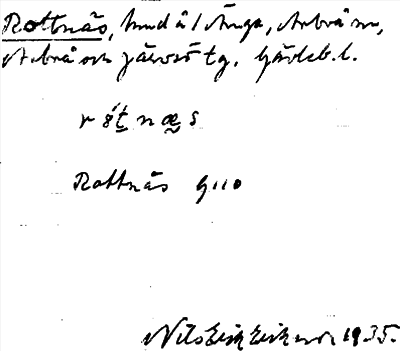 Rottnäs, hmd å l Änga, Arbrå sn,
Arbrå och Järvsö tg. Gävleb. l.
r ó t n æ s
Rottnäs G110
Nils Erik Eriksson 1935.